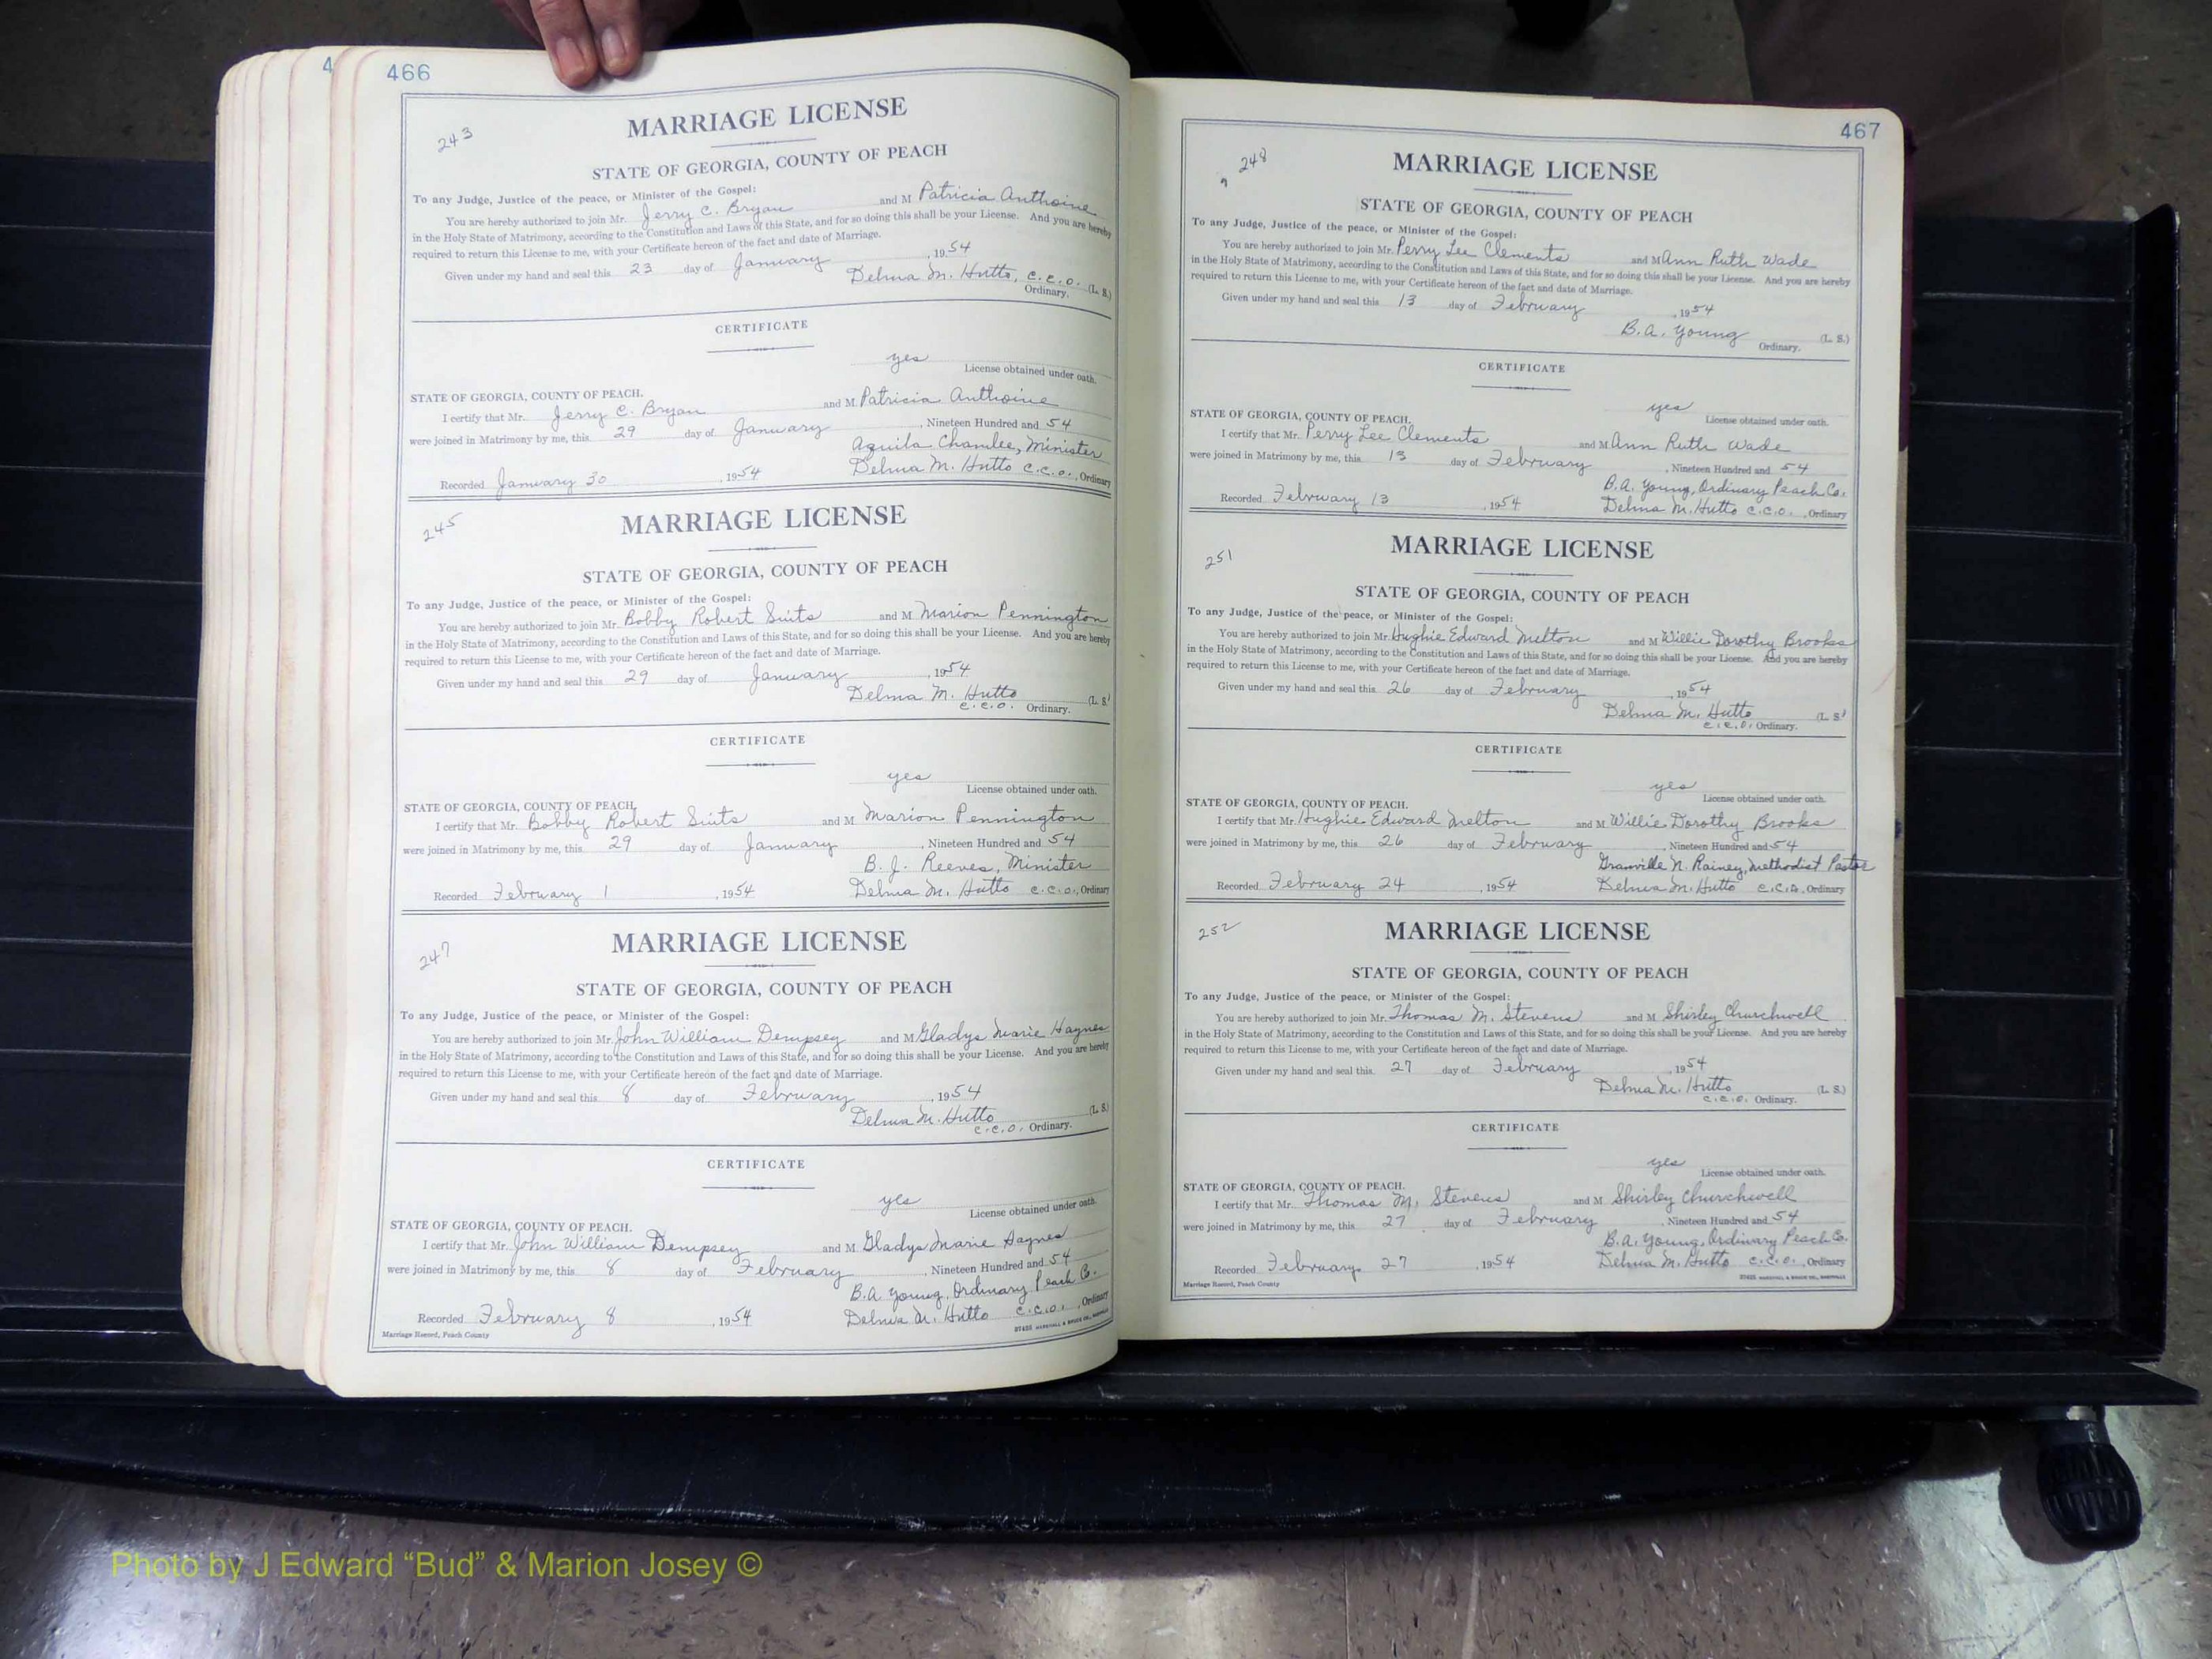 4
466
243
MARRIAGE LICENSE
STATE OF GEORGIA, COUNTY OF PEACH
To any Judge, Justice of the peace, or Minister of the Gospel:
You are hereby authorized to join Mr. Jerry C. Bryan and M Patricia Anthoine
in the Holy State of Matrimony, according to the Constitution and Laws of this State, and for so doing this shall be your License. And you are hereby
required to return this License to me, with your Certificate hereon of the fact and date of Marriage.
Given under my hand and seal this 23 day of January, 1954
Delma M. Hutto, C.C.O. (L. S.)
Ordinary.
CERTIFICATE
yes
License obtained under oath.
STATE OF GEORGIA, COUNTY OF PEACH.
I certify that Mr. Jerry C. Bryan and M. Patricia Anthoine
were joined in Matrimony by me, this 29 day of January, Nineteen Hundred and 54
Aquila Chamlee, Minister
Recorded January 30, 1954 Delma M. Hutto C.C.O., Ordinary
245
MARRIAGE LICENSE
STATE OF GEORGIA, COUNTY OF PEACH
To any Judge, Justice of the peace, or Minister of the Gospel:
You are hereby authorized to join Mr. Bobby Robert Suits and M Marion Pennington
in the Holy State of Matrimony, according to the Constitution and Laws of this State, and for so doing this shall be your License. And you are hereby
required to return this License to me, with your Certificate hereon of the fact and date of Marriage.
Given under my hand and seal this 29 day of January, 1954
Delma M. Hutto (L. S.)
C.C.O. Ordinary.
CERTIFICATE
yes
License obtained under oath.
STATE OF GEORGIA, COUNTY OF PEACH.
I certify that Mr. Bobby Robert Suits and M Marion Pennington
were joined in Matrimony by me, this 29 day of January, Nineteen Hundred and 54
B. J. Reeves, Minister
Recorded February 1, 1954 Delma M. Hutto C.C.O., Ordinary
247
MARRIAGE LICENSE
STATE OF GEORGIA, COUNTY OF PEACH
To any Judge, Justice of the peace, or Minister of the Gospel:
You are hereby authorized to join Mr. John William Dempsey and M Gladys Marie Haynes
in the Holy State of Matrimony, according to the Constitution and Laws of this State, and for so doing this shall be your License. And you are hereby
required to return this License to me, with your Certificate hereon of the fact and date of Marriage.
Given under my hand and seal this 8 day of February, 1954
Delma M. Hutto (L. S.)
C.C.O. Ordinary.
CERTIFICATE
yes
License obtained under oath.
STATE OF GEORGIA, COUNTY OF PEACH.
I certify that Mr. John William Dempsey and M. Gladys Marie Haynes
were joined in Matrimony by me, this 8 day of February, Nineteen Hundred and 54
B.A. Young, Ordinary Peach Co.
Recorded February 8, 1954 Delma M. Hutto C.C.O., Ordinary
Marriage Record, Peach County
467
248
MARRIAGE LICENSE
STATE OF GEORGIA, COUNTY OF PEACH
To any Judge, Justice of the peace, or Minister of the Gospel:
You are hereby authorized to join Mr. Perry Lee Clements and M Ann Ruth Wade
in the Holy State of Matrimony, according to the Constitution and Laws of this State, and for so doing this shall be your License. And you are hereby
required to return this License to me, with your Certificate hereon of the fact and date of Marriage.
Given under my hand and seal this 13 day of February, 1954
B.A. Young (L. S.)
Ordinary.
CERTIFICATE
yes
License obtained under oath.
STATE OF GEORGIA, COUNTY OF PEACH.
I certify that Mr. Perry Lee Clements and M Ann Ruth Wade
were joined in Matrimony by me, this 13 day of February, Nineteen Hundred and 54
B.A. Young, Ordinary Peach Co.
Recorded February 13, 1954 Delma M. Hutto C.C.O., Ordinary
251
MARRIAGE LICENSE
STATE OF GEORGIA, COUNTY OF PEACH
To any Judge, Justice of the peace, or Minister of the Gospel:
You are hereby authorized to join Mr. Hughie Edward Melton and M Willie Dorothy Brooks
in the Holy State of Matrimony, according to the Constitution and Laws of this State, and for so doing this shall be your License. And you are hereby
required to return this License to me, with your Certificate hereon of the fact and date of Marriage.
Given under my hand and seal this 26 day of February, 1954
Delma M. Hutto (L. S.)
C.C.O. Ordinary.
CERTIFICATE
yes
License obtained under oath.
STATE OF GEORGIA, COUNTY OF PEACH.
I certify that Mr. Hughie Edward Melton and M Willie Dorothy Brooks
were joined in Matrimony by me, this 26 day of February, Nineteen Hundred and 54
Granville N. Rainey, Methodist Pastor
Recorded February 24, 1954 Delma M. Hutto C.C.O., Ordinary
252
MARRIAGE LICENSE
STATE OF GEORGIA, COUNTY OF PEACH
To any Judge, Justice of the peace, or Minister of the Gospel:
You are hereby authorized to join Mr. Thomas M. Stevens and M Shirley Churchwell
in the Holy State of Matrimony, according to the Constitution and Laws of this State, and for so doing this shall be your License. And you are hereby
required to return this License to me, with your Certificate hereon of the fact and date of Marriage.
Given under my hand and seal this 27 day of February, 1954
Delma M. Hutto (L. S.)
C.C.O. Ordinary.
CERTIFICATE
yes
License obtained under oath.
STATE OF GEORGIA, COUNTY OF PEACH.
I certify that Mr. Thomas M. Stevens and M Shirley Churchwell
were joined in Matrimony by me, this 27 day of February, Nineteen Hundred and 54
B.A. Young, Ordinary Peach Co.
Recorded February 27, 1954 Delma M. Hutto C.C.O., Ordinary
Marriage Record, Peach County
Photo by J Edward “Bud” & Marion Josey ©